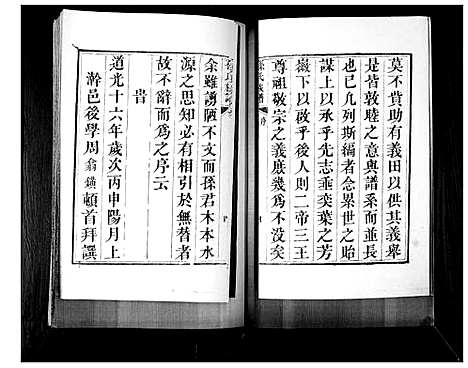 莫不貲助有義田以供其義舉
是皆敦睦之意與譜系而並長
也已凡列斯編者念累世之貽
謀上以承乎先志垂奕葉之芳
徽下以啟乎後人則二帝三王
尊祖敬宗之義庶幾爲不沒矣
余雖謭陋文而孫君木本水
源之思知必有相引於無替者
故不辭而爲之序云
旹
道光十六年歲次丙申陽月上
澣邑後學周翁鐄頓首拜譔
氏族譜
序